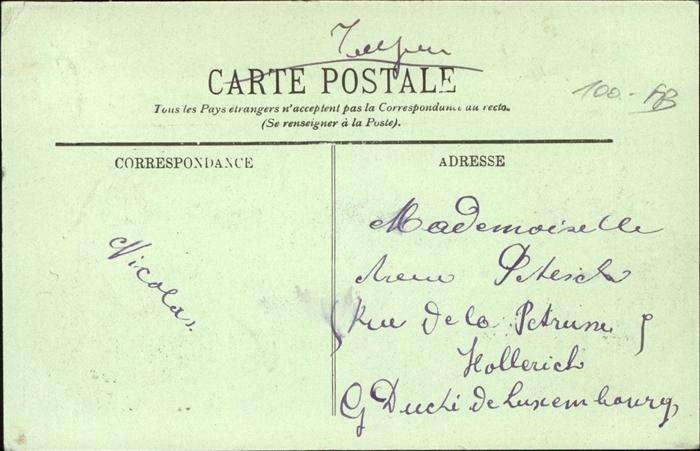 CARTE POSTALE
Tous les Pays etrangers n'acceptent pas la Correspondance au recto.
(Se renseigner à la Poste).
CORRESPONDANCE
ADRESSE
100.-
Nicolas.
Mademoiselle
Rue de la Petrusse
Hollerich
G Duché de Luxembourg